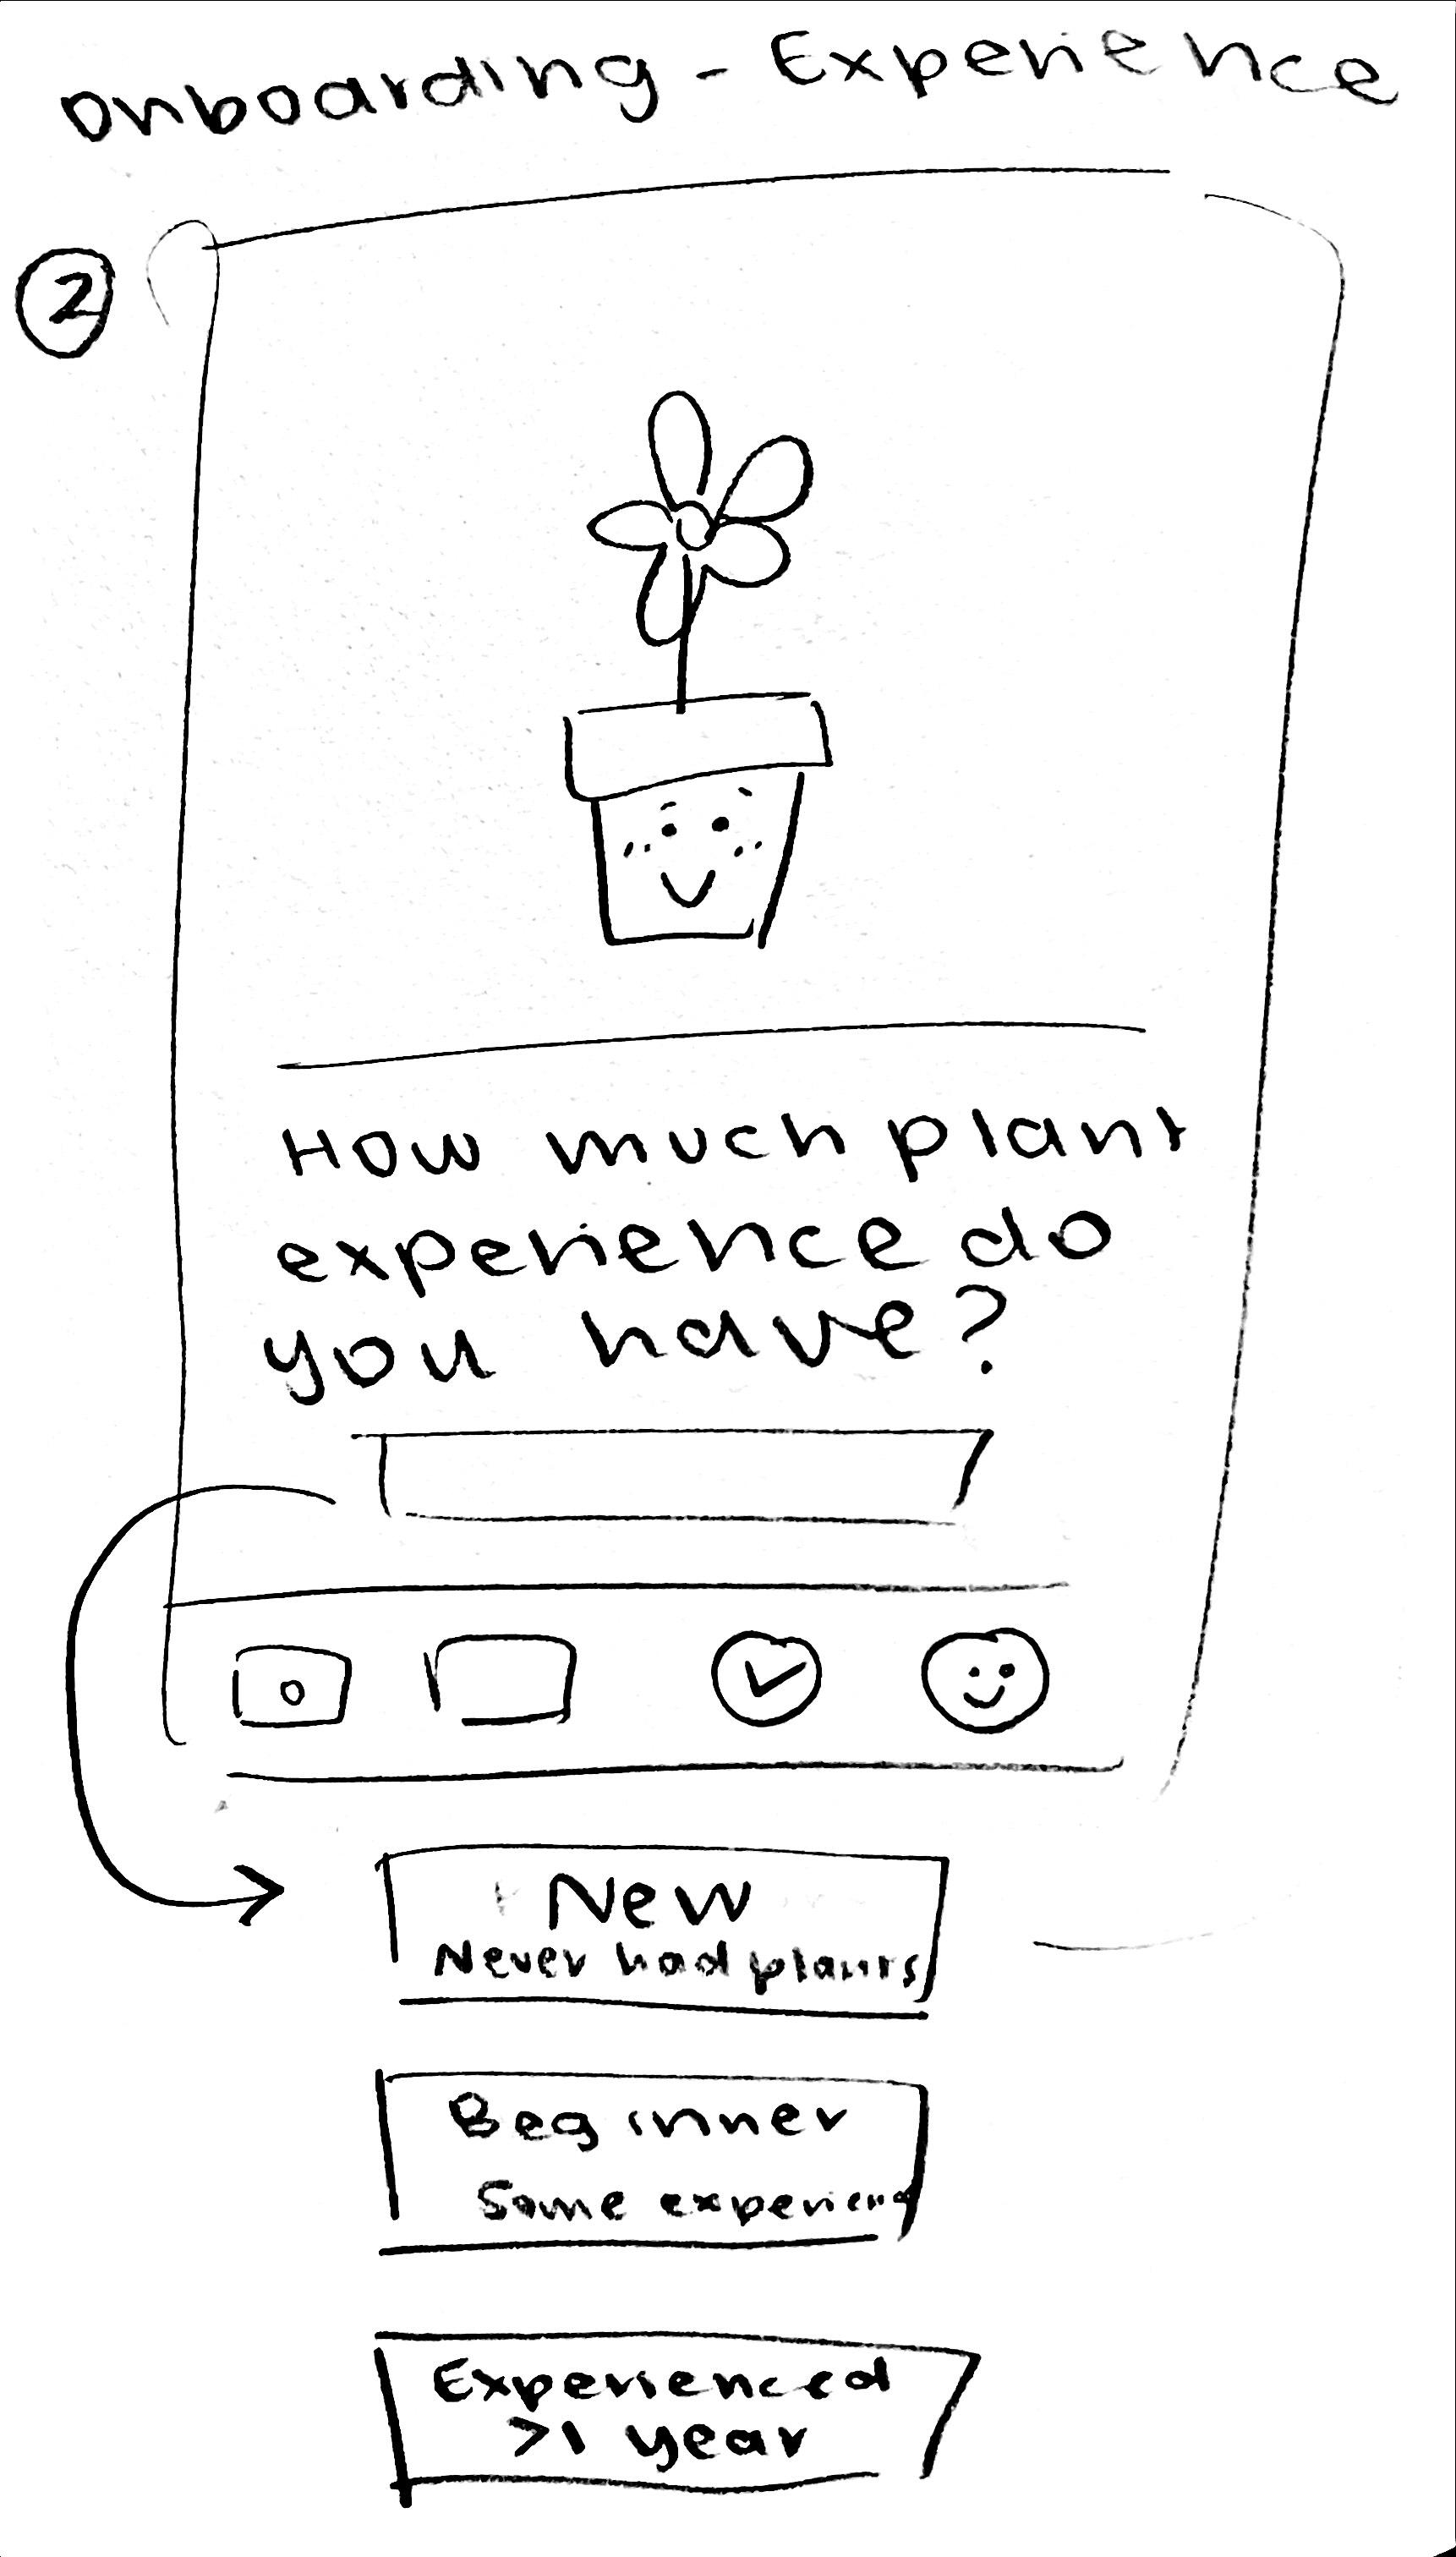 Onboarding - Experience
2
How much plant
experience do
you have?
New
Never had plants
Beginner
Some experience
Experienced
>1 year